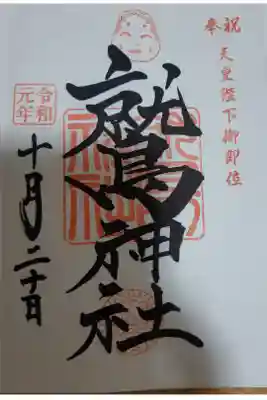 奉祝
天皇陛下御即位
鷲神社
令和
元年
十月二十日